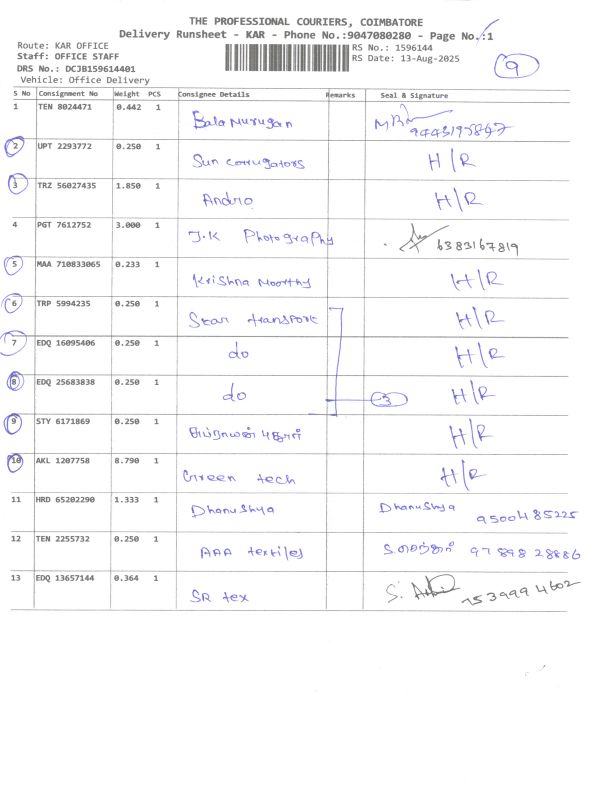 THE PROFESSIONAL COURIERS, COIMBATORE
Delivery Runsheet - KAR - Phone No.:9047080280 - Page No.:1
Route: KAR OFFICE RS No.: 1596144
Staff: OFFICE STAFF RS Date: 13-Aug-2025
9
DRS No.: DCJB159614401
Vehicle: Office Delivery
S No Consignment No Weight PCS Consignee Details Remarks Seal & Signature
1 TEN 8024471 0.442 1 Bala Murugan
2 UPT 2293772 0.250 1 Sun Corrugators H/R
3 TRZ 56027435 1.850 1 Andro H/R
4 PGT 7612752 3.000 1 J.K Photography 6383167819
5 MAA 710833065 0.233 1 Krishna Moorthy H/R
6 TRP 5994235 0.250 1 Star transport H/R
7 EDQ 16095406 0.250 1 do H/R
8 EDQ 25683838 0.250 1 do 3 H/R
9 STY 6171869 0.250 1 H/R
10 AKL 1207758 8.790 1 Green tech H/R
11 HRD 65202290 1.333 1 Dhanushya Dhanushya 9500485225
12 TEN 2255732 0.250 1 AAA textiles 97898 28886
13 EDQ 13657144 0.364 1 SR tex 7539994602